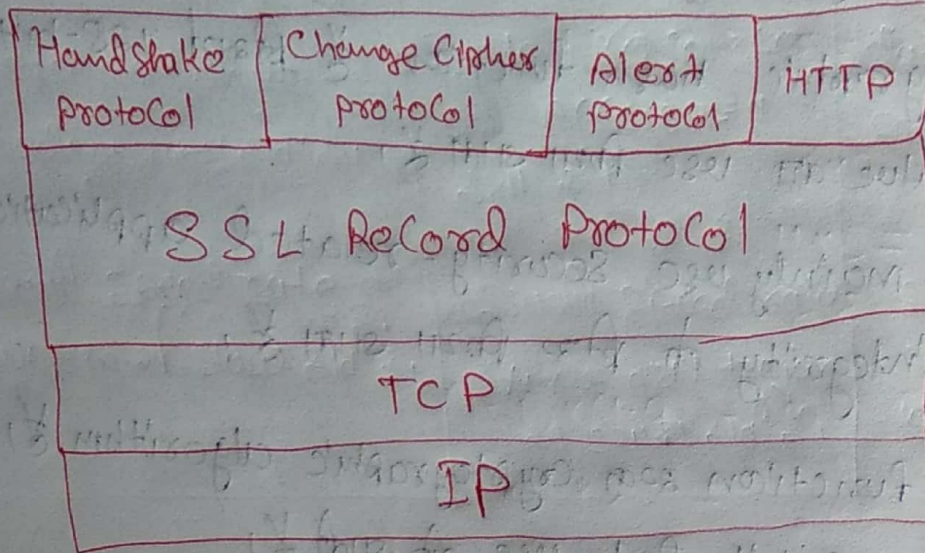 Handshake
Protocol
Change Cipher
Protocol
Alert
Protocol
HTTP
SSL Record Protocol
TCP
IP